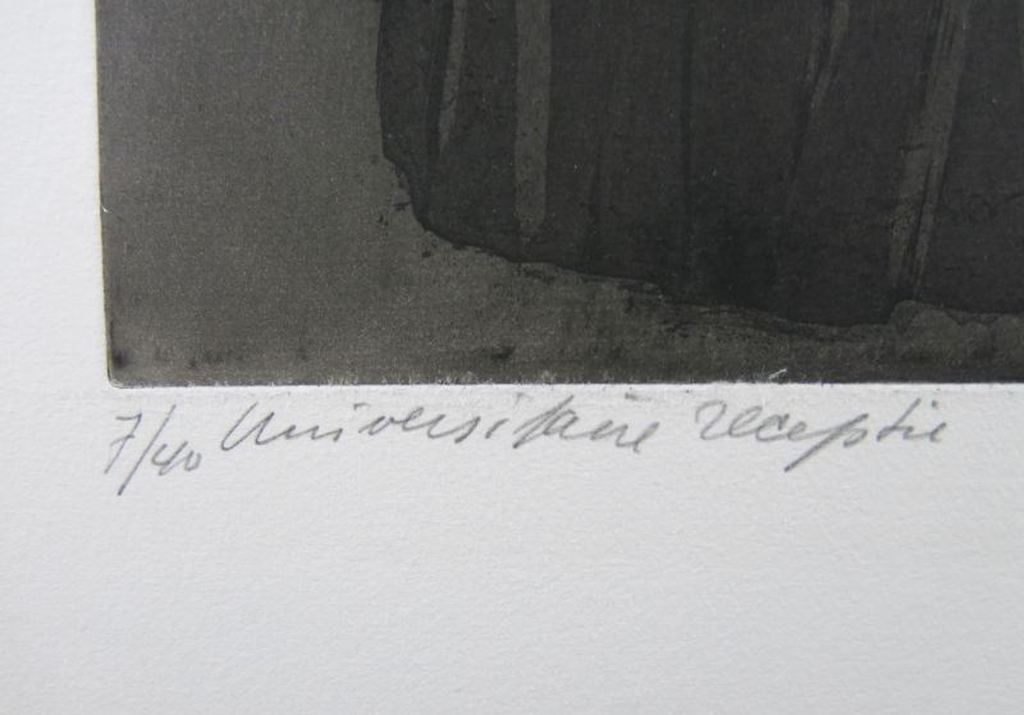 7/40 Universitaire receptie